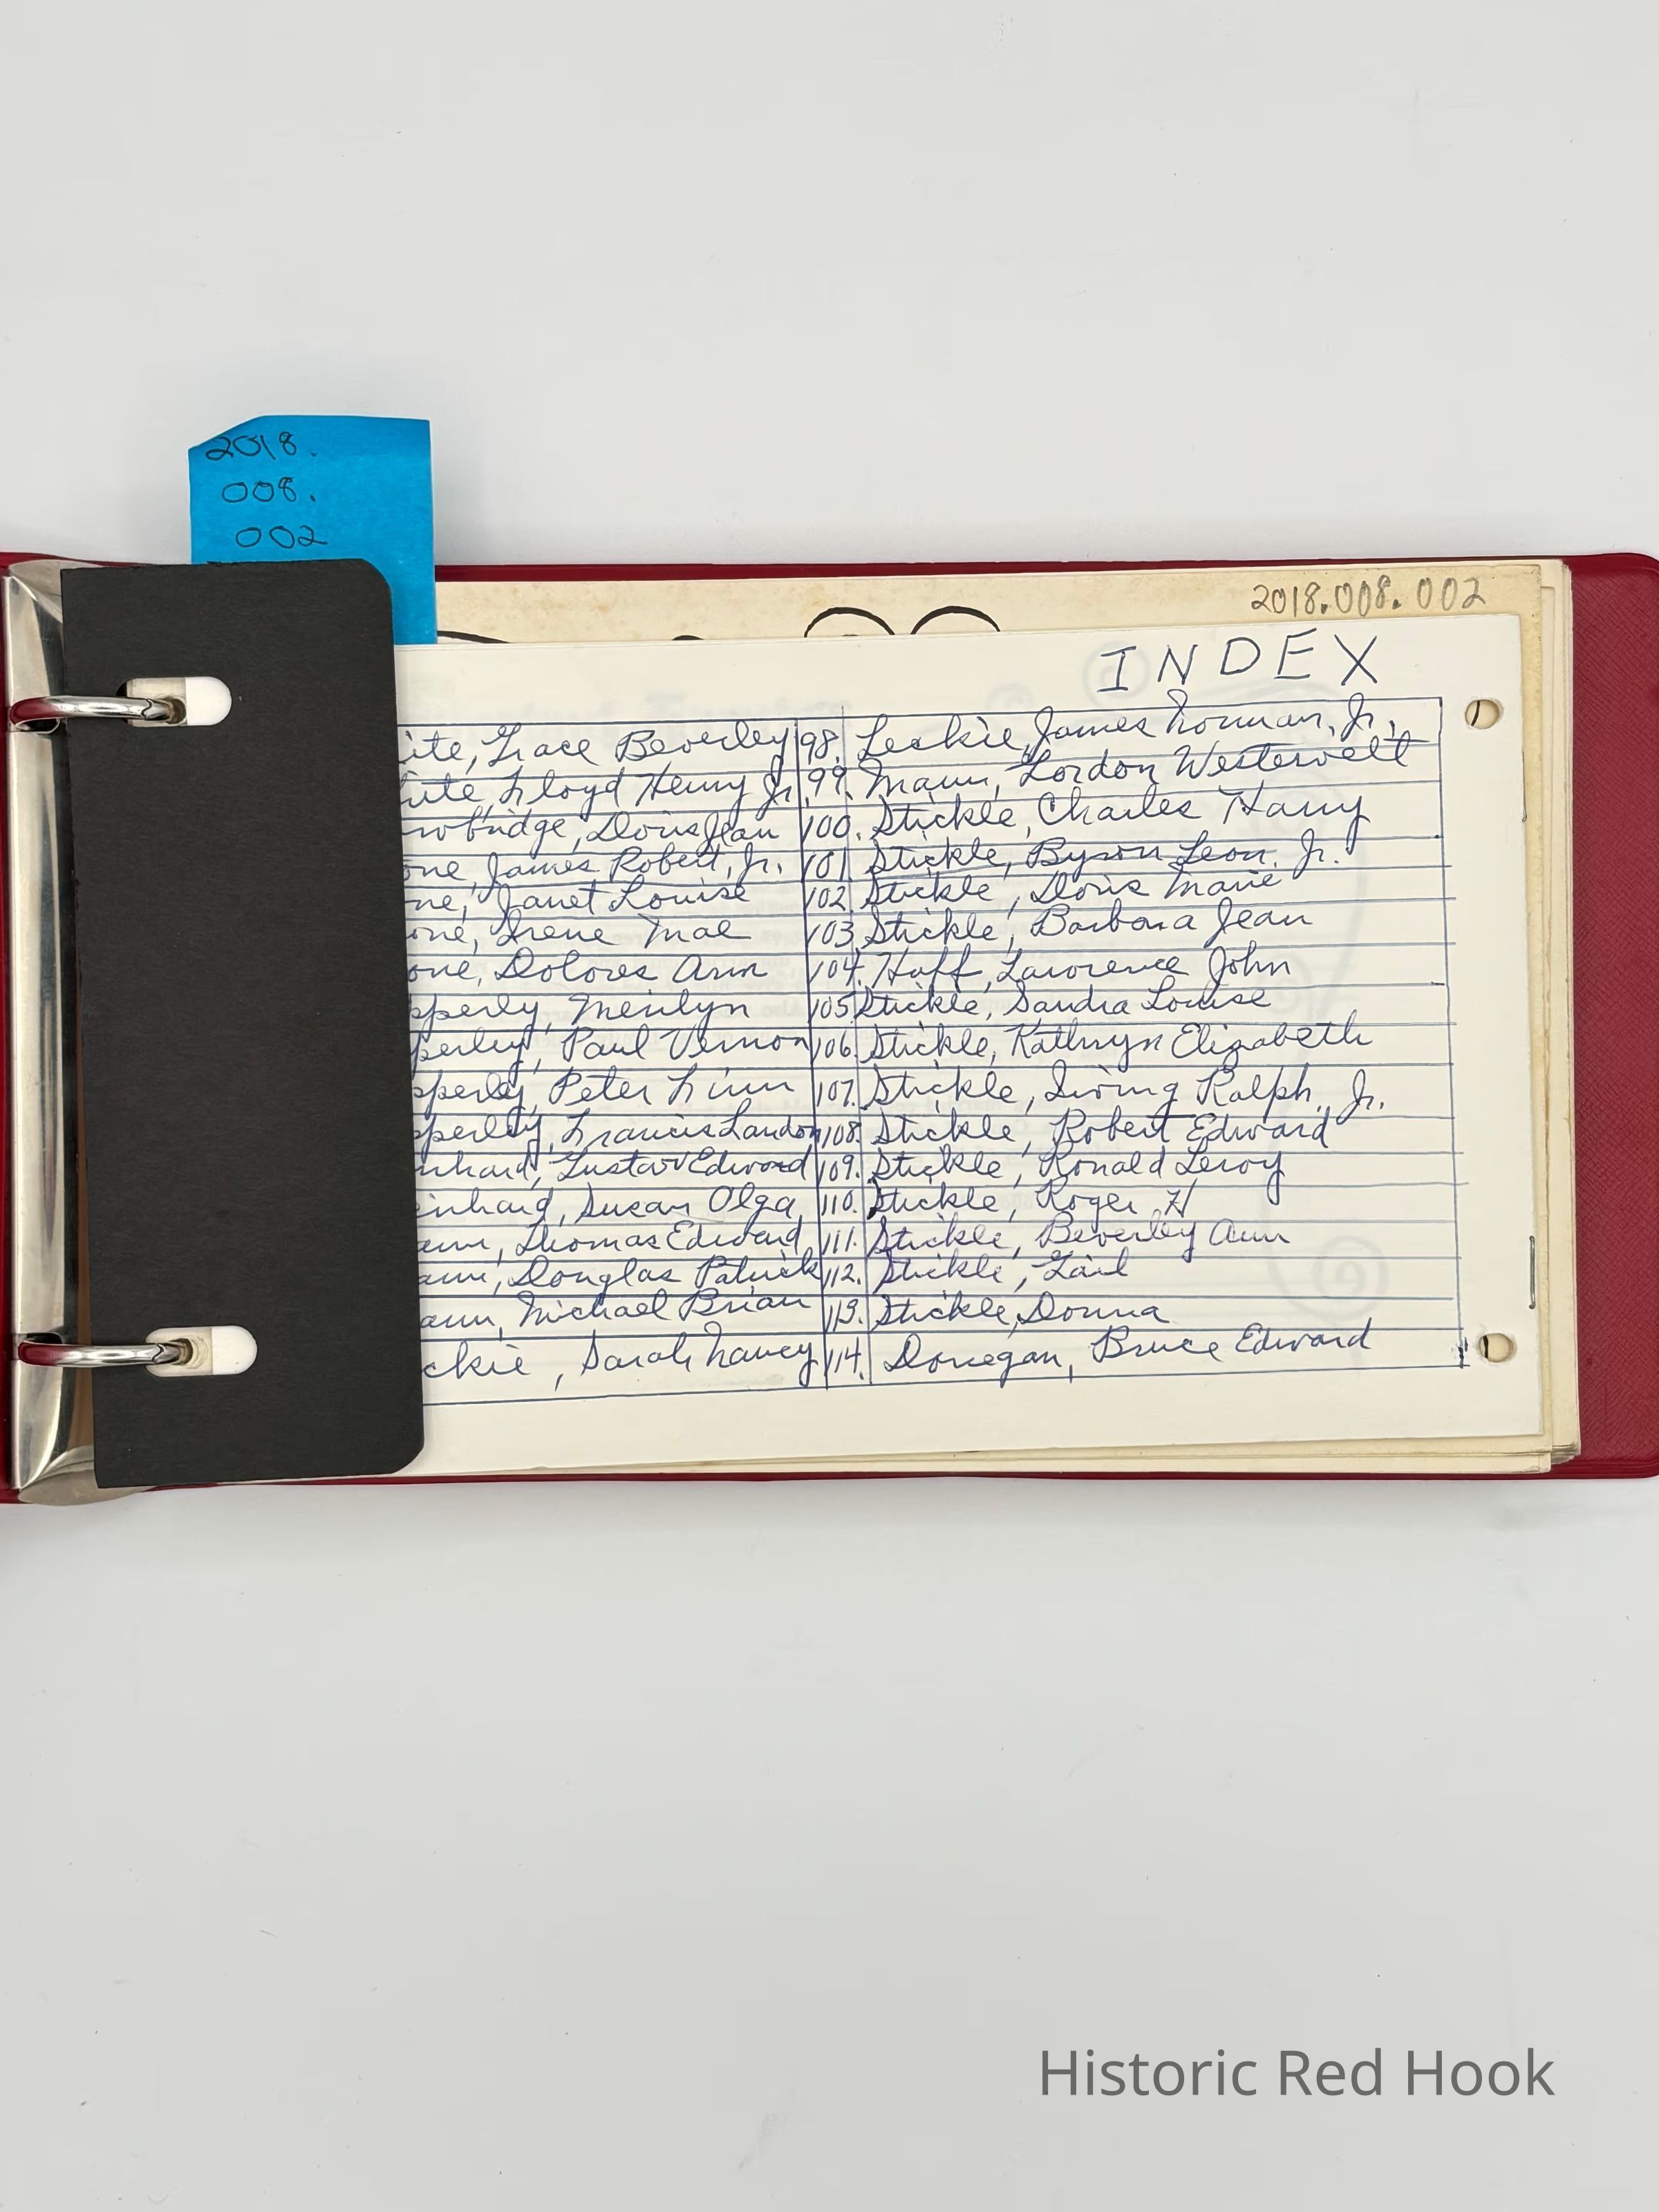 2018.
008.
002
2018.008.002
INDEX
ite, Grace Beverley 98. Leckie, James Norman, Jr.
ite, Floyd Henry Jr. 99. Mann, Gordon Westervelt
wbridge, Doris Jean 100. Stickle, Charles Harry
one, James Robert, Jr. 101 Stickle, Byron Leon, Jr.
ne, Janet Louise 102 Stickle, Doris Marie
one, Irene Mae 103 Stickle, Barbara Jean
one, Dolores Ann 104. Hoff, Lawrence John
pperly, Merilyn 105 Stickle, Sandra Louise
perley, Paul Vernon 106. Stickle, Kathryn Elizabeth
pperly, Peter Finn 107. Stickle, Irving Ralph, Jr.
pperly, Francis Landon 108. Stickle, Robert Edward
nhard, Gustav Edward 109. Stickle, Ronald Leroy
inhard, Susan Olga 110. Stickle, Roger H
ann, Thomas Edward 111. Stickle, Beverley Ann
ann, Douglas Patrick 112. Stickle, Gail
ann, Michael Brian 113. Stickle, Donna
ckie, Sarah Nancy 114. Donegan, Bruce Edward
Historic Red Hook